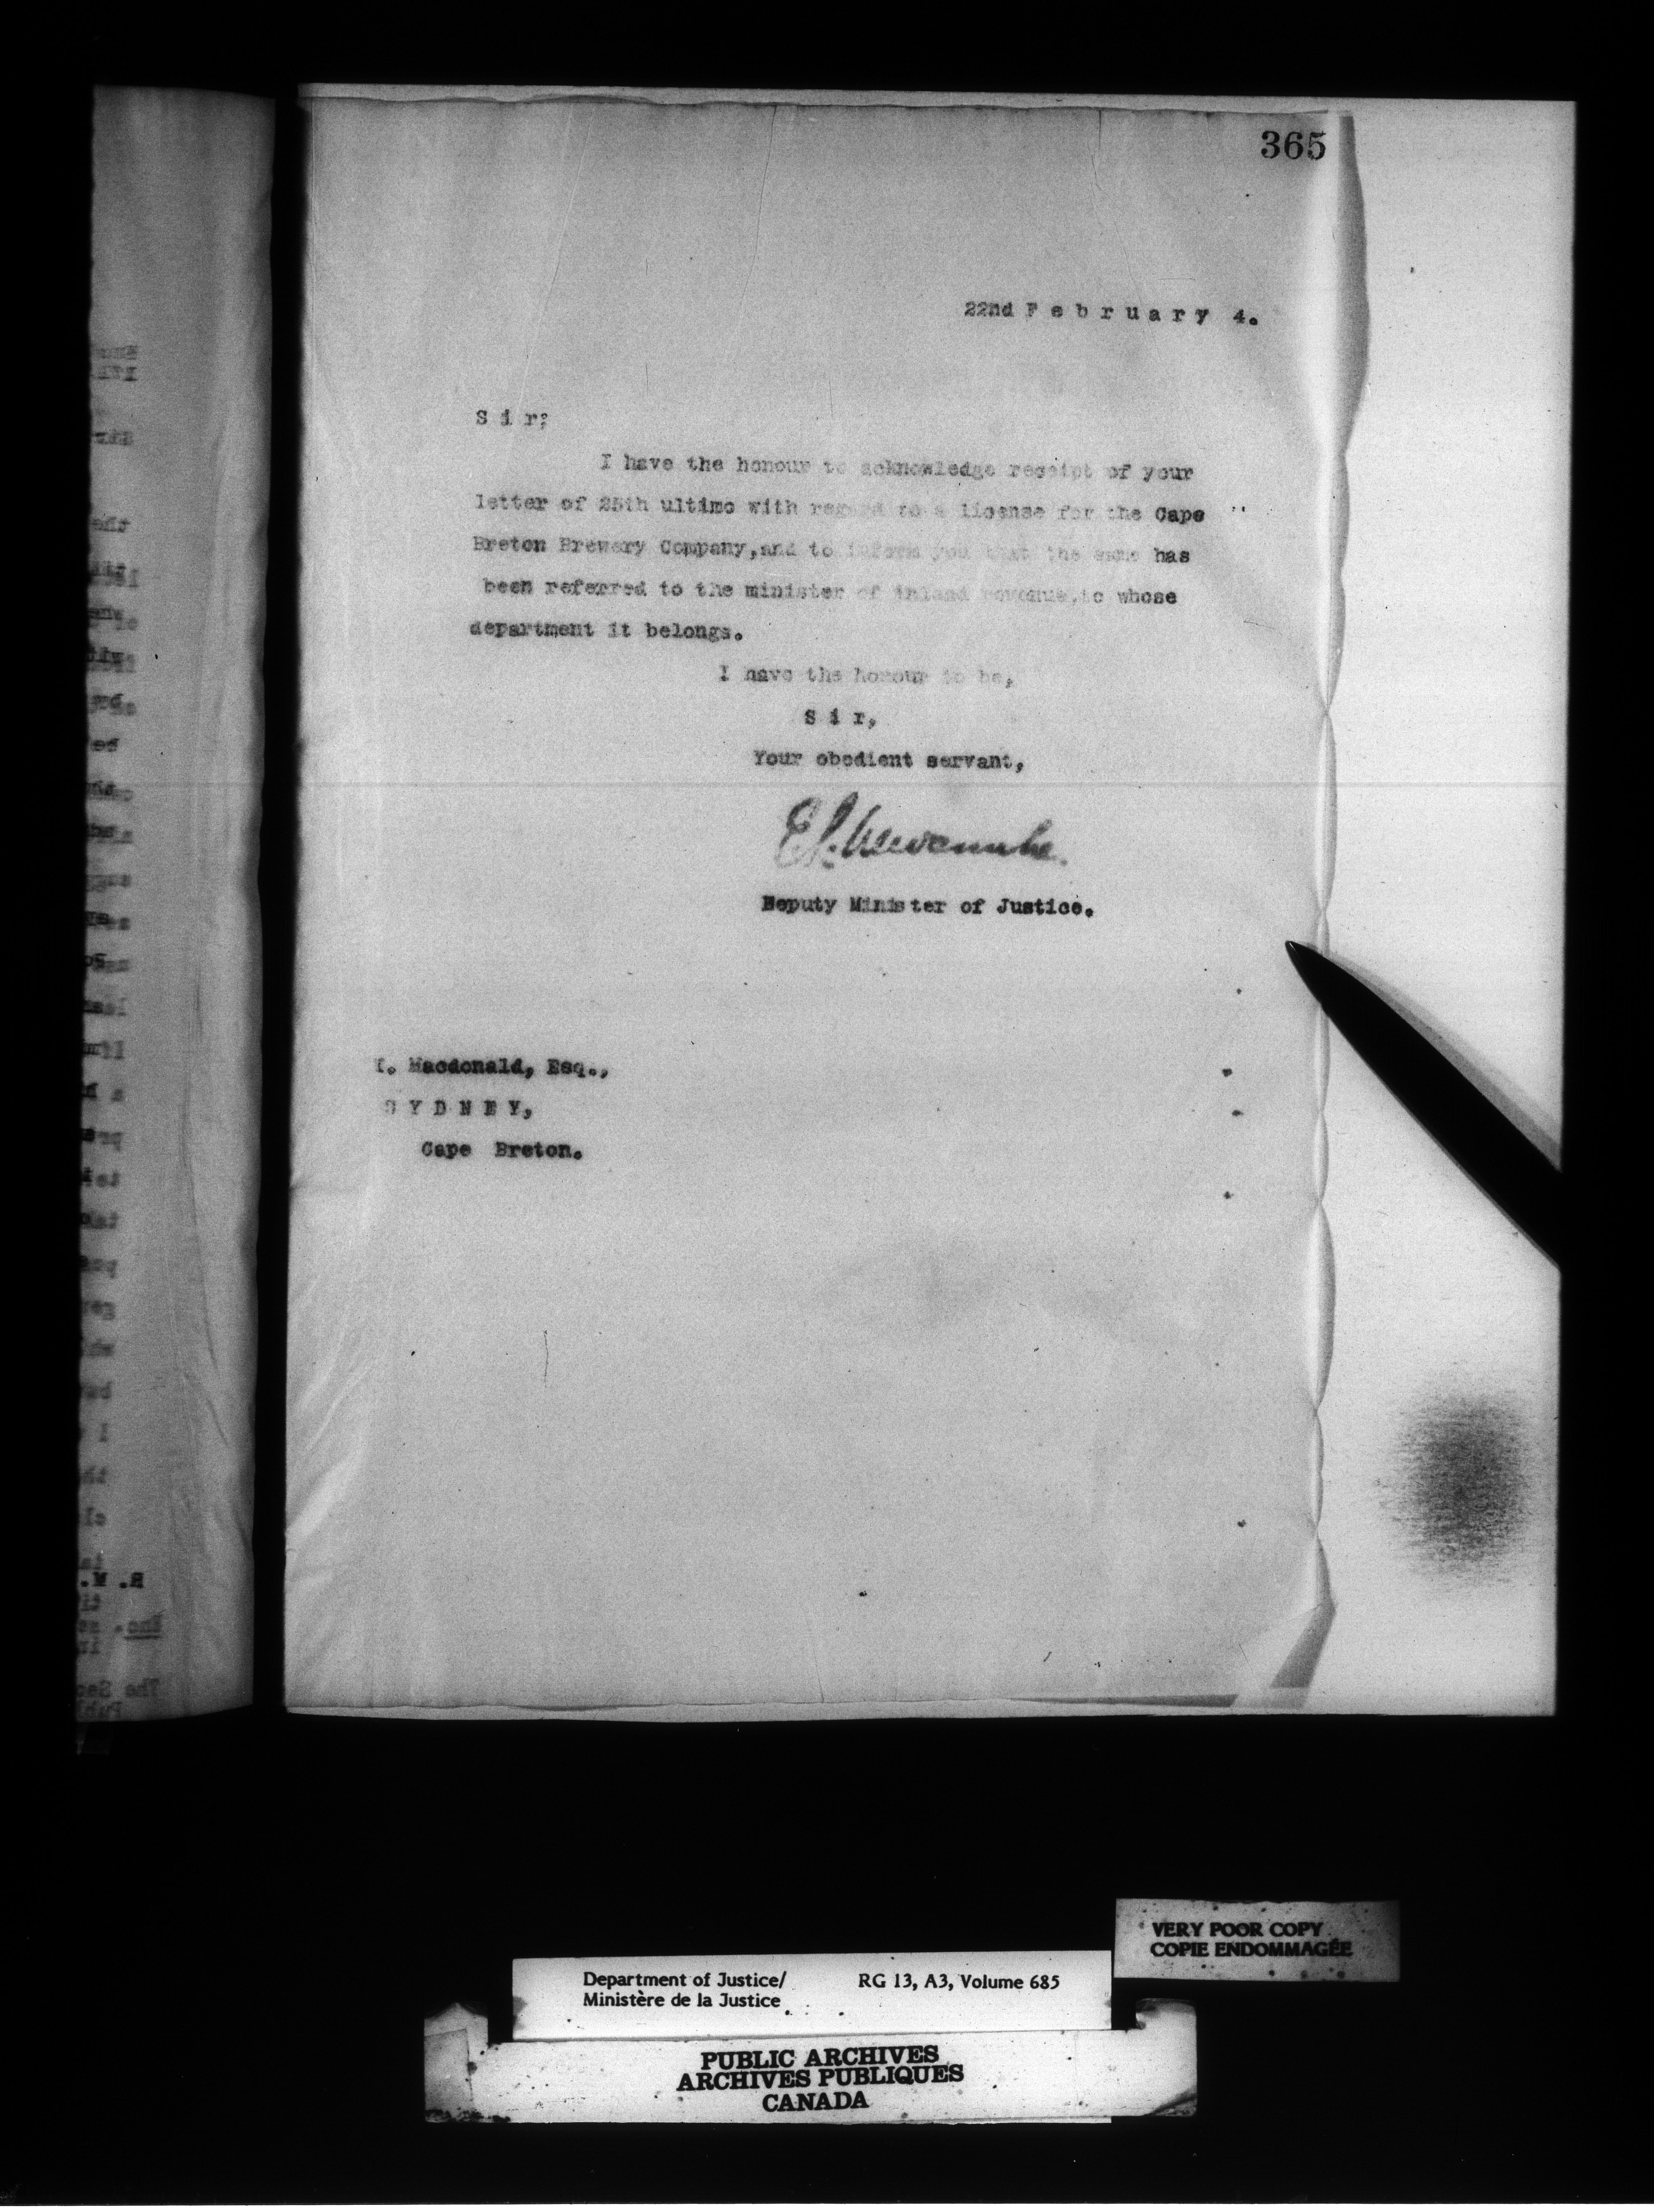 365
22nd February 4.
Sir;
I have the honour to acknowledge receipt of your
letter of 25th ultimo with regard to a license for the Cape
Breton Brewery Company,and to inform you that the same has
been referred to the minister of inland revenue,to whose
department it belongs.
I have the honour to be,
Sir,
Your obedient servant,
E.L. Newcombe.
Deputy Minister of Justice.
Macdonald, Esq.,
SYDNEY,
Cape Breton.
VERY POOR COPY
COPIE ENDOMMAGÉE
Department of Justice/ RG 13, A3, Volume 685
Ministère de la Justice
PUBLIC ARCHIVES
ARCHIVES PUBLIQUES
CANADA